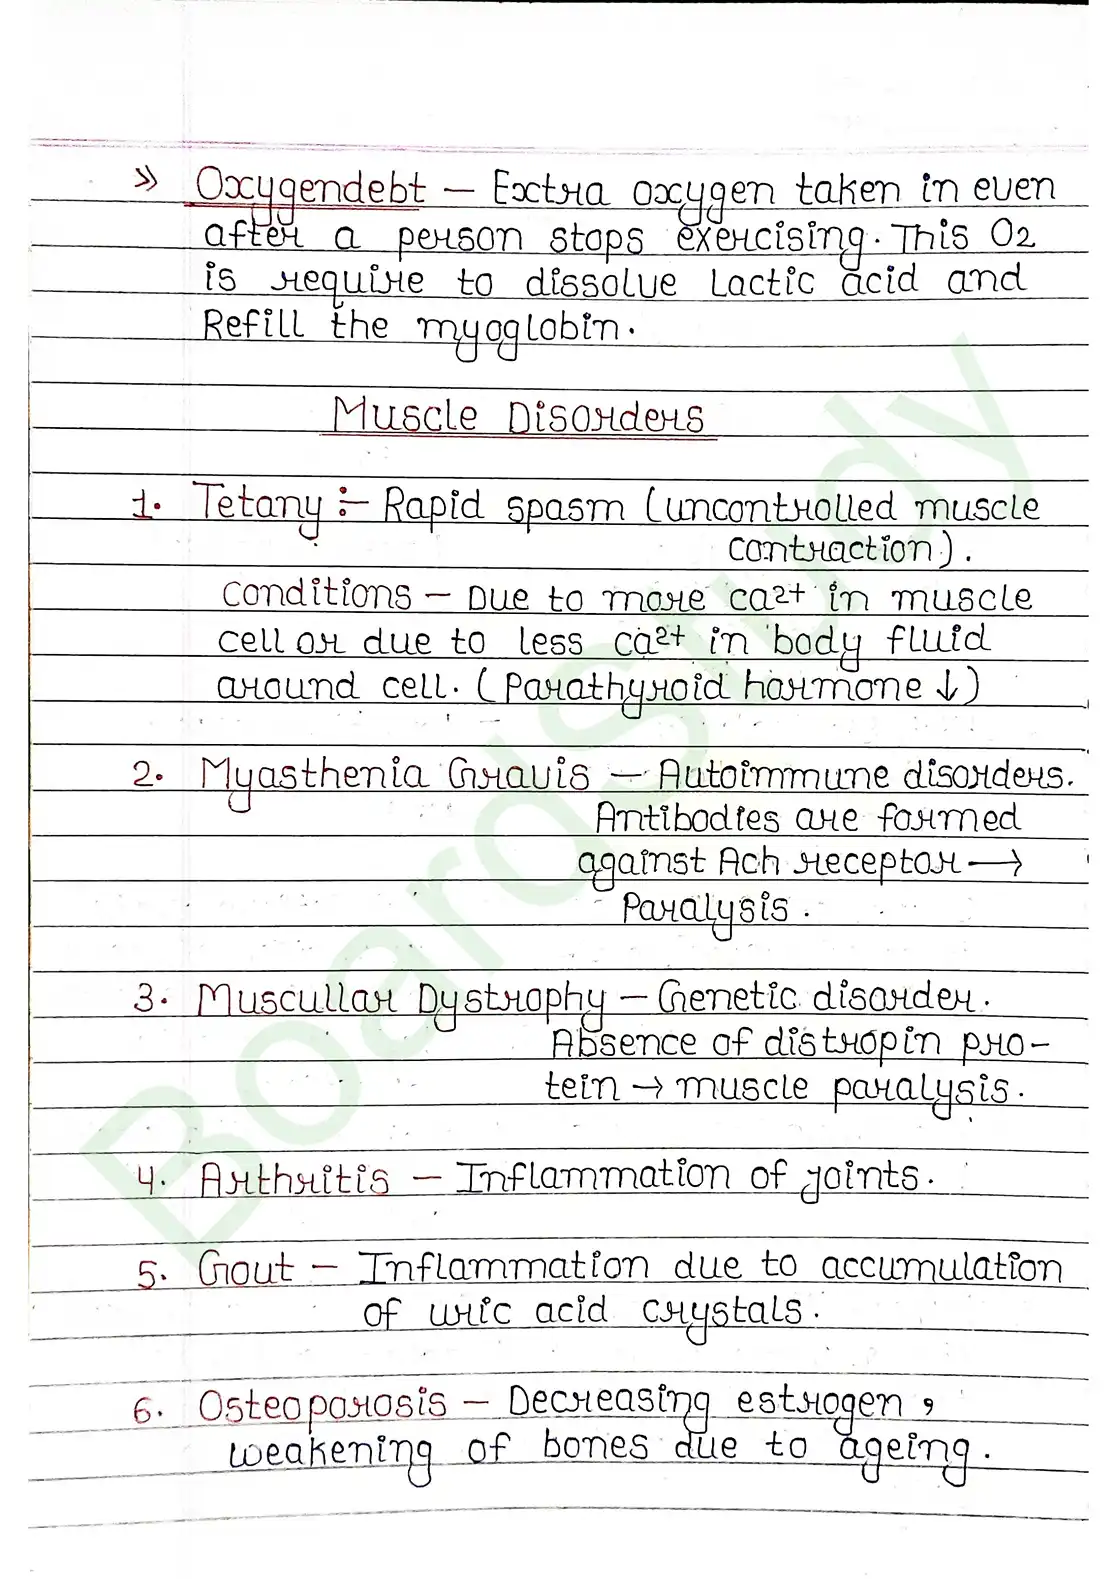 » Oxygendebt — Extra oxygen taken in even
after a person stops exercising. This O2
is require to dissolve Lactic acid and
Refill the myoglobin.
Muscle Disorders
1. Tetany :- Rapid spasm (uncontrolled muscle
contraction).
conditions — Due to more ca2+ in muscle
cell or due to less ca2+ in body fluid
around cell. (Parathyroid hormone ↓)
2. Myasthenia Gravis — Autoimmune disorders.
Antibodies are formed
against Ach receptor →
Paralysis.
3. Muscullar Dystrophy — Genetic disorder.
Absence of distropin pro-
tein → muscle paralysis.
4. Arthritis — Inflammation of joints.
5. Gout — Inflammation due to accumulation
of uric acid crystals.
6. Osteoporosis — Decreasing estrogen,
weakening of bones due to ageing.
Boardstudy